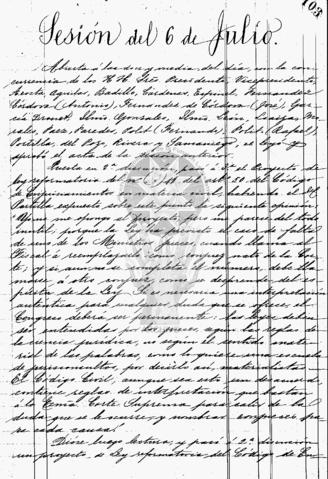 103
Sesión del 6 de Julio.
Abierta á las doce y media del día, con la con-
currencia de los H. H. Sres Presidente, Vicepresidente,
Acosta, Aguilar, Badillo, Cárdenas, Espinel, Fernández
Córdova (Antonio), Fernández de Córdova (José), Gar-
cía González, León, Lizarzaburu
Páez, Paredes, Polit (Fernando), Polit (Rafael),
Portilla, del Pozo, Rivera y Samaniego, se leyó y
aprobó el acta de la sesión anterior.
Puesto en 2ª discusión, pasó á 3ª el Proyecto de
ley reformatorio del art. del Código
de Enjuiciamientos en materia civil, habiendo el H.
Portilla expuesto sobre este punto la siguiente opinión:
no me opongo al proyecto, pero me parece del todo
inútil, porque la ley ha previsto el caso de falta
de uno de los Ministros jueces, cuando llama al
Fiscal á reemplazarle como conjuez nato de la Cor-
te; y si aun no se completa el número, debe lla-
marse á otro conjuez, como se desprende del es-
píritu de la ley. Si hemos de dar interpretación
auténtica para toda duda que se ofrezca, el
Congreso deberá ser permanente: las leyes deben
ser entendidas por los jueces, según las reglas de
la ciencia jurídica, no según el sentido mate-
rial de las palabras, como lo quisiera una escuela
por decirlo así, materialista.
El Código Civil, aunque sea este un desacuerdo,
contiene reglas de interpretación que bastan
á la Corte Suprema para salir de la
duda que se le ocurre, y nombrar conjueces pa-
ra cada causa.
Dióse luego lectura, y pasó á 2ª discusión
un proyecto de Ley reformatoria del Código de En-